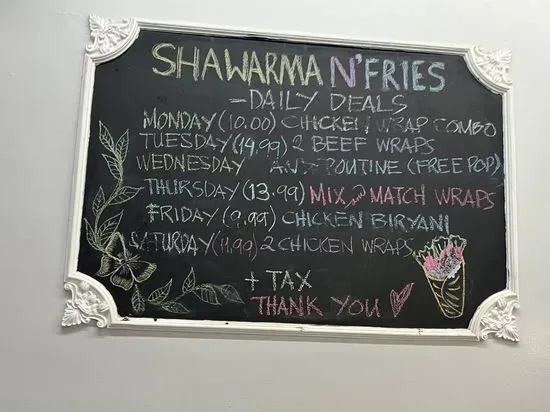 SHAWARMA N'FRIES
-DAILY DEALS
MONDAY (10.00) CHICKEN WRAP COMBO
TUESDAY (14.99) 2 BEEF WRAPS
WEDNESDAY ANY POUTINE (FREE POP)
THURSDAY (13.99) MIX AND MATCH WRAPS
FRIDAY (9.99) CHICKEN BIRYANI
SATURDAY (11.99) 2 CHICKEN WRAPS
+ TAX
THANK YOU